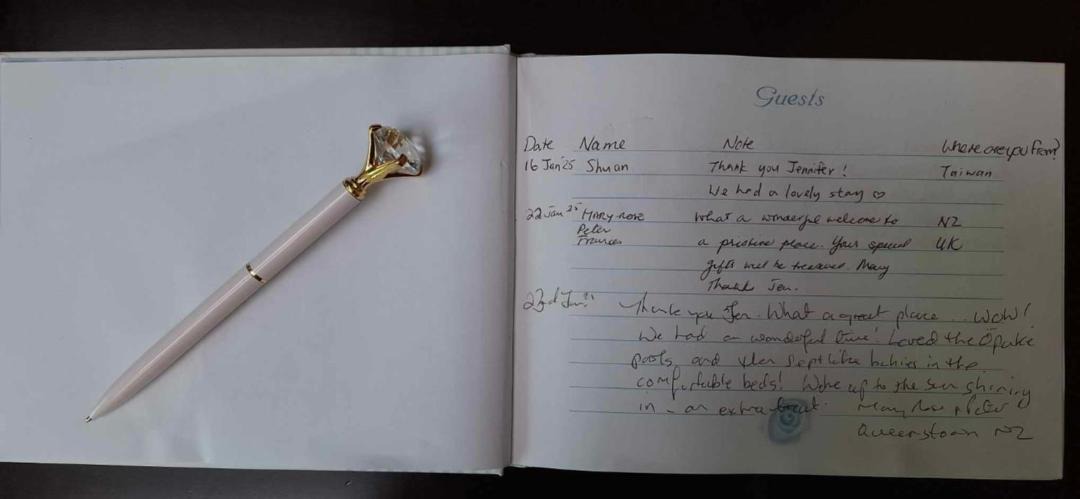 Guests
Date Name Note Where are you From?
16 Jan'25 Shuan Thank you Jennifer! Taiwan
We had a lovely stay ♡
22 Jan 25 MARY-ROSE What a wonderful welcome to NZ
Peter
Frances a pristine place. Your special UK
gifts will be treasured. Many
Thanks Jen.
23rd Jan Thank you Jen. What a great place... Wow!
We had a wonderful time! Loved the Ōpuke
pools and then slept like babies in the
comfortable beds! Woke up to the sun shining
in - an extra treat. Mary Rose Peter
Queenstown NZ